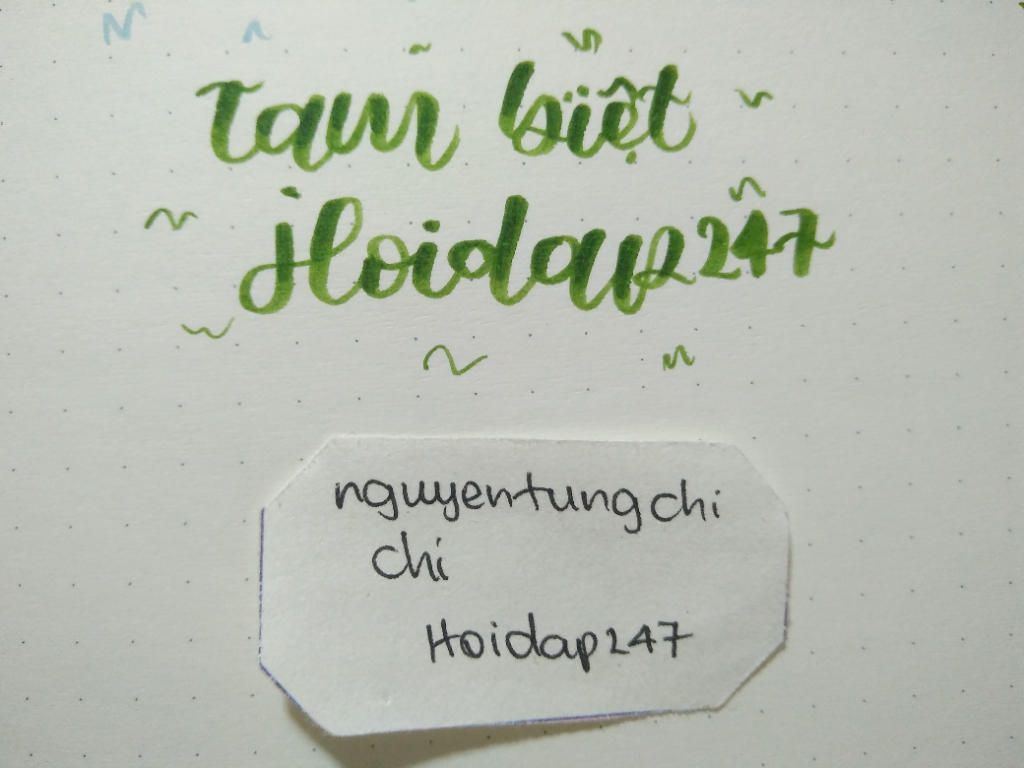 Tạm biệt
Hoidap247
nguyentungchi
Chi
Hoidap247